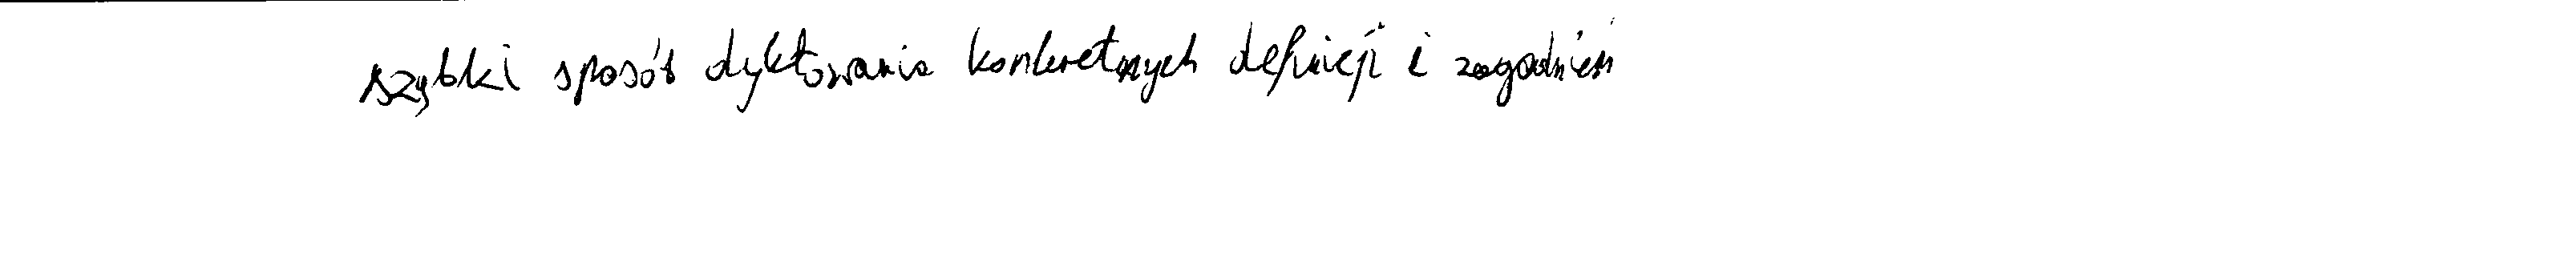 szybki sposób dyktowania konkretnych definicji i zagadnień